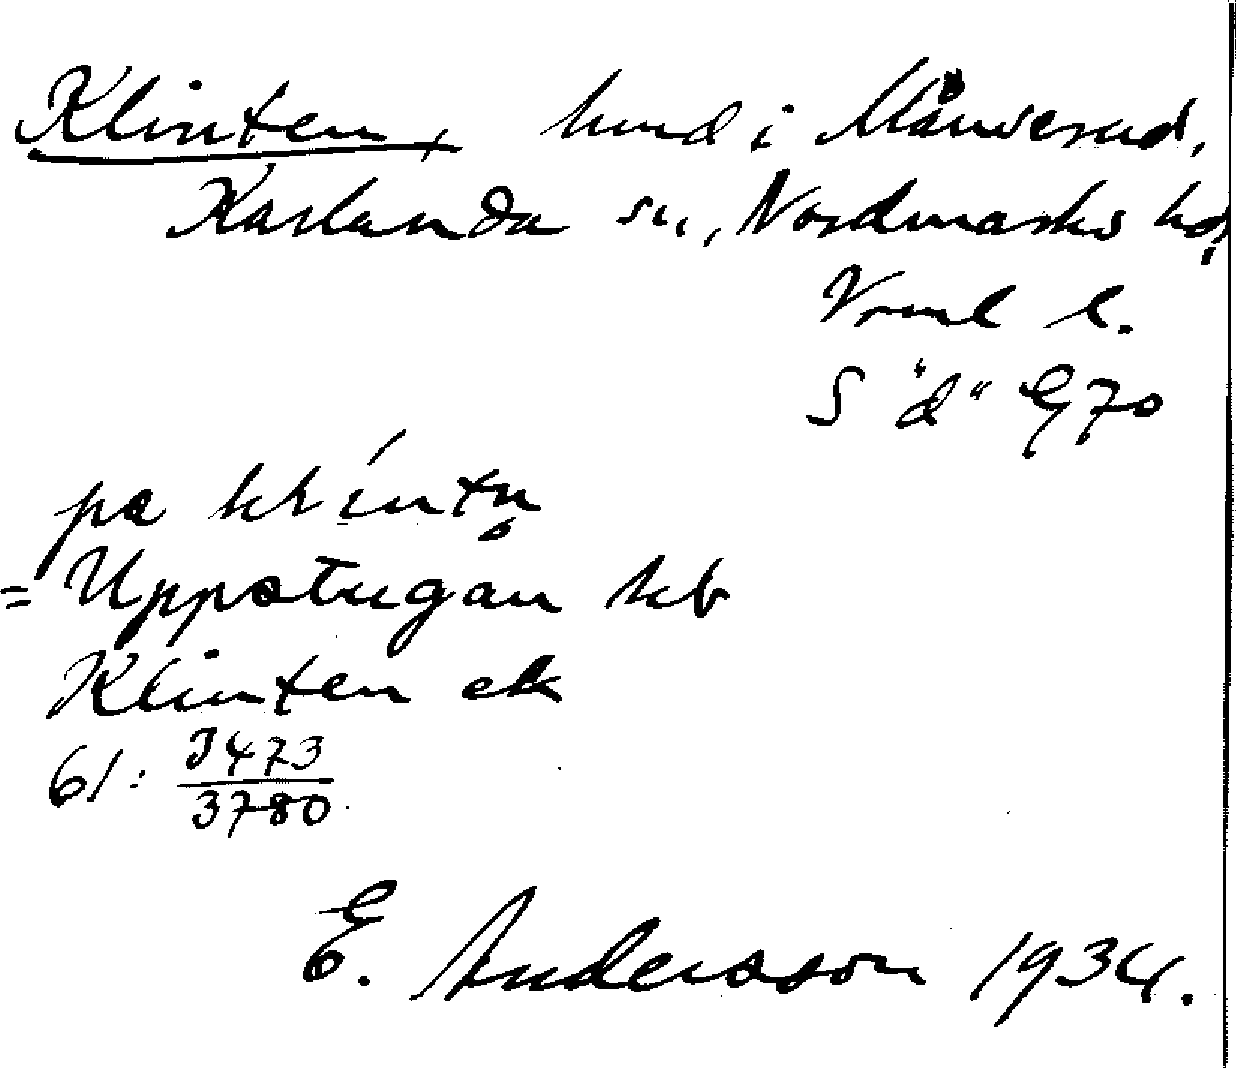 Klinten, hmd i Månserud,
Karlanda sn., Nordmarks hd,
Vrml l.
S "d" G70
pa klíntn̥
= Uppstugan kb
Klinten ek
61: J473/3780
E. Andersson 1934.